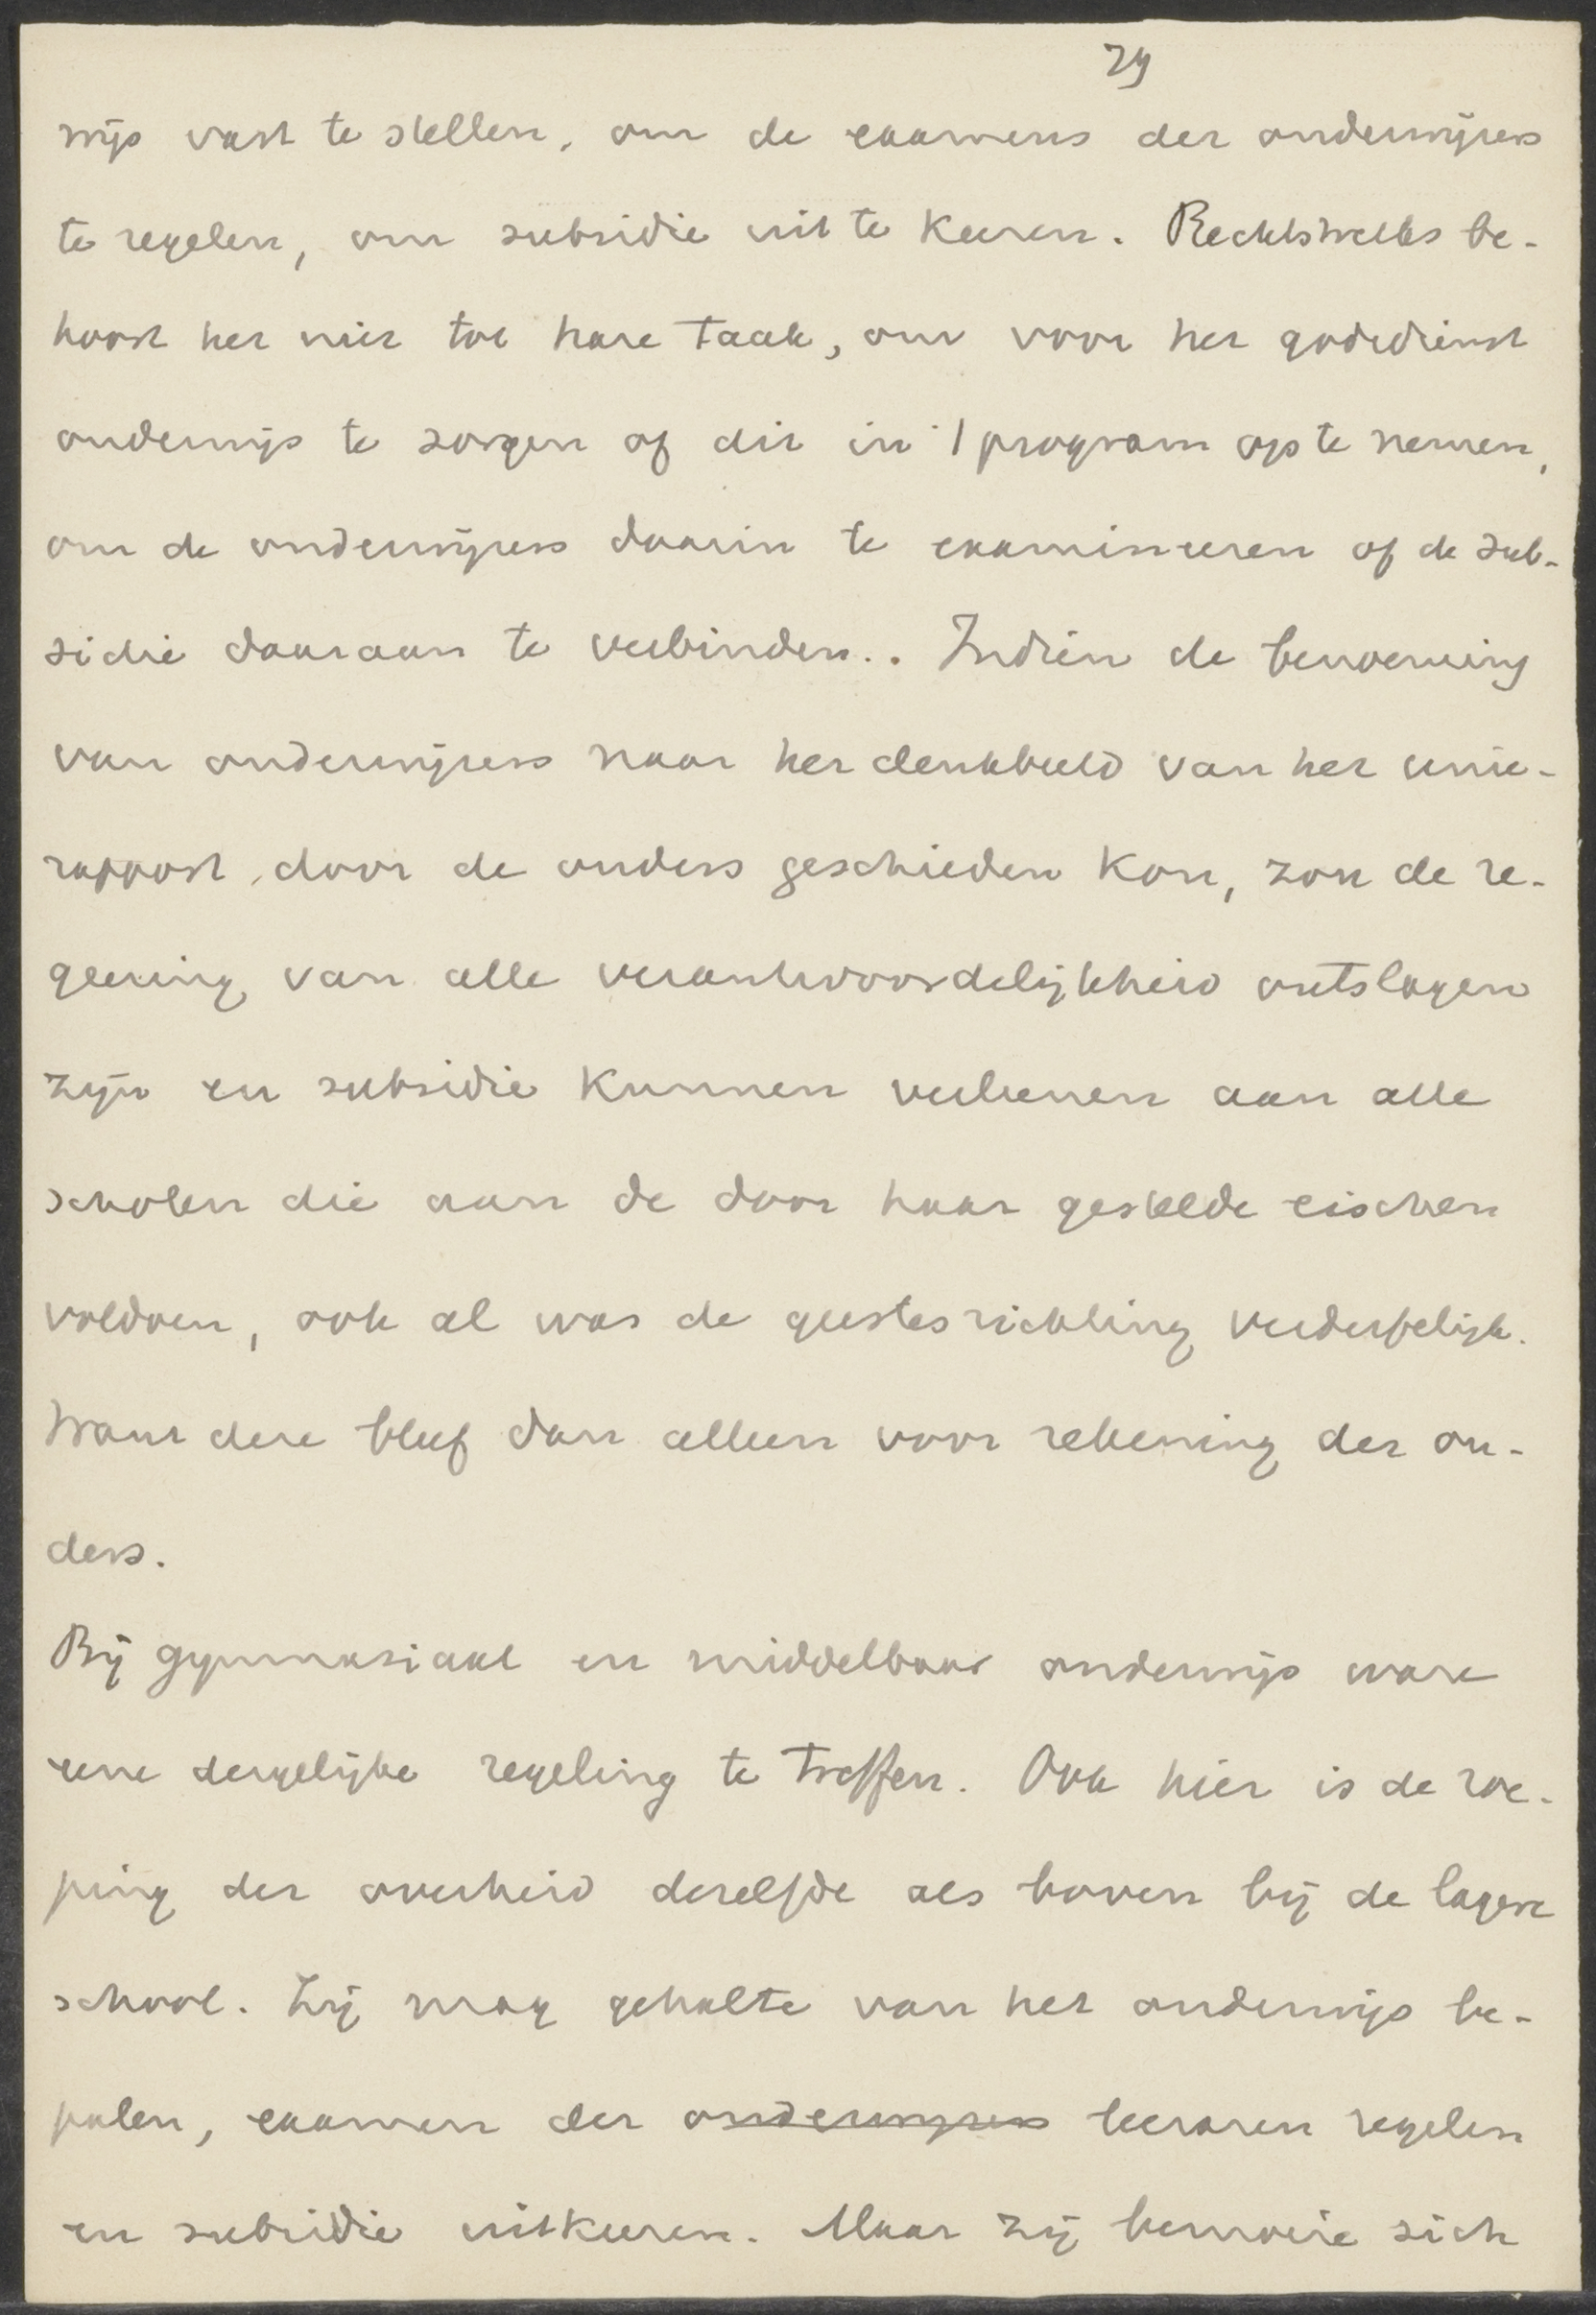 29
wijs vast te stellen, om de examens der onderwijzers
te regelen, om subsidie uit te keeren. Rechtstreeks be-
hoort het niet tot hare taak, om voor het godsdienst
onderwijs te zorgen of dit in 't program op te nemen,
om de onderwijzers daarin te examineeren of de sub-
sidie daaraan te verbinden.. Indien de benoeming
van onderwijzers naar het denkbeeld van het unie-
rapport, door de ouders geschieden kon, zou de re-
geering van alle verantwoordelijkheid ontslagen
zijn en subsidie kunnen verleenen aan alle
scholen die aan de door haar gestelde eischen
voldoen, ook al was de geestesrichting verderfelijk.
Want deze bleef dan alleen voor rekening der ou-
ders.
Bij gymnasiaal en middelbaar onderwijs ware
eene dergelijke regeling te treffen. Ook hier is de roe-
ping der overheid dezelfde als boven bij de lagere
school. Zij mag gehalte van het onderwijs be-
palen, examen der onderwijzers leeraren regelen
en subsidie uitkeeren. Maar zij bemoeie zich